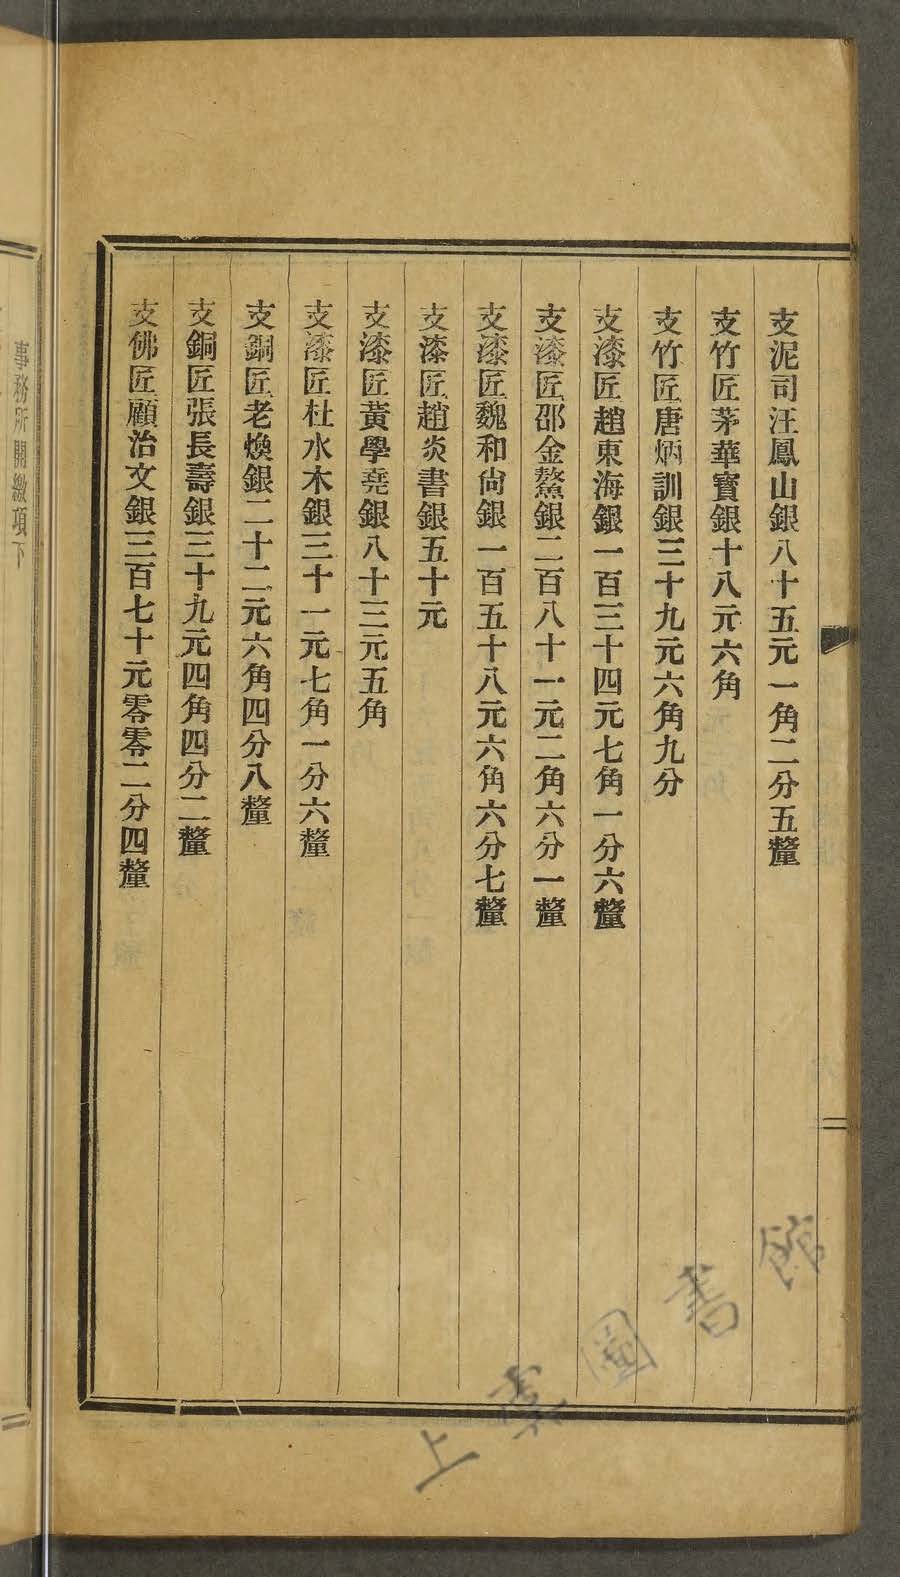 支泥司汪鳳山銀八十五元一角二分五釐
支竹匠茅華寳銀十八元六角
支竹匠唐炳訓銀三十九元六角九分
支漆匠趙東海銀一百三十四元七角一分六釐
支漆匠邵金鰲銀二百八十一元二角六分一釐
支漆匠魏和尙銀一百五十八元六角六分七釐
支漆匠趙炎書銀五十元
支漆匠黃學堯銀八十三元五角
支漆匠杜水木銀三十一元七角一分六釐
支銅匠老煥銀二十二元六角四分八釐
支銅匠張長壽銀三十九元四角四分二釐
支佛匠顧治文銀三百七十元零零二分四釐
事務所開繳項下
上虞圖書館